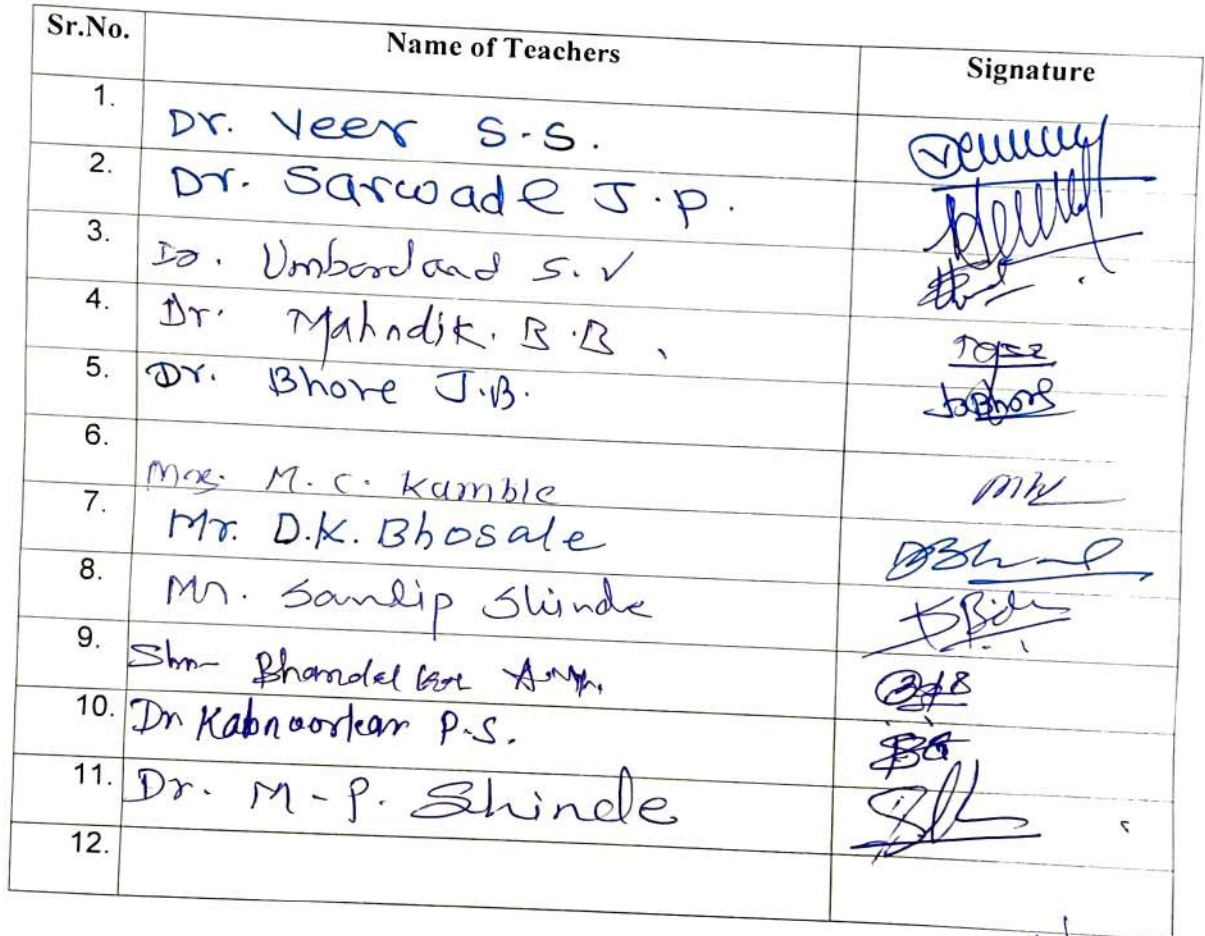 Sr.No. Name of Teachers Signature
1. Dr. Veer S.S.
2. Dr. Sarwade J.P.
3. Dr. Umbardand S.V
4. Dr. Mahndik. B.B.
5. Dr. Bhore J.B. JBBhore
6. Mrs. M.C. Kamble MK
7. Mr. D.K. Bhosale
8. Mr. Sandip Shinde
9. Shri
10. Dr Kabnoorkar P.S.
11. Dr. M-P. Shinde
12.